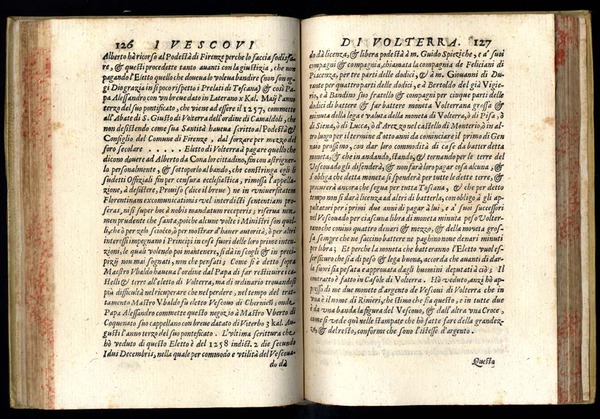 126 I VESCOVI
Alberto hà ricorso al Podestà di Firenze perche lo faccia sodisfa-
re, & questi procedette tanto auanti con la giustitia, che non
pagando l'Eletto quello che doueua lo voleua bandire (non son og-
gi Diogratia in sì poco rispetto i Prelati di Toscana) & così Pa-
pa Alessandro con vn breue dato in Laterano x Kal. Maij l'anno
terzo del suo pontificato, che viene ad essere il 1257, commette
all'Abate di S. Giusto di Volterra dell'ordine di Camaldoli, che
non desistendo come sua Santità haueua scritto al Podestà &
Consiglio del Comune di Firenze, dal forzare per mezzo del
foro secolare ..... Eletto di Volterra à pagare quello che
dicono douere ad Alberto da Cona lor cittadino, sin con astrigner-
lo personalmente, & sottoporlo al bando, che constringa egli i
sudetti Offitiali sin per censura ecclesiastica, rimossa l'appella-
zione, à desistere, Prouiso (dice il breue) ne in vniuersitatem
Florentinam excomunicationis vel interdicti sententiam pro-
feras, nisi super hoc à nobis mandatum receperis; riserua non
men prudente che santa, poiche alcune volte i Ministri son quel-
li, che ò per zelo sciocco, ò per mostrar d'hauer autorità, ò per altri
interessi impegnano i Principi in cose fuori delle loro prime inten-
zioni, le quali volendo poi mantenere, si dà in scogli & in preci-
pizij non mai sognati, non che pensati; Come si è detto sopra
Mastro Vbaldo haueua l'ordine dal Papa di far restituire i ca-
stelli & terre all'eletto di Volterra, ma di ordinario trouandosi
più difficultà nel ricuperare che nel perdere, nel tempo del trat-
tamento Mastro Vbaldo fu eletto Vescouo di onde
Papa Alessandro commette questo negozio à Mastro Vberto di
Coquenato suo cappellano con breue dato di Viterbo 3 kal. Au-
gusti l'anno terzo del suo pontificato. L'vltima scrittura che
hò veduto di questo Eletto è del 1258 indict. 2 die secundo
Idus Decembris, nella quale per commodo e vtilità del Vescoua-
do dà
DI VOLTERRA. 127
do dà licenza, & libera podestà à m. Guido Spezziche, e à suoi
compagni & compagnia, chiamata la compagnia de Feliciani di
Piacenza, per tre parti delle dodici, & à m. Giouanni di Du-
rante per quattro parti delle dodici, & à Bertoldo del già Vigie-
rio, e à Bandino suo fratello & compagni per cinque parti delle
dodici di battere & far battere moneta Volterrana grossa &
minuta della lega e valuta della moneta di Volterra, ò di Pisa, ò
di Siena, ò di Lucca, ò d'Arezzo nel castello di Monterio, ò in al-
tro luogo per il termine d'anni da cominciare il primo di Gen-
naio prossimo, con dar loro commodità di case da batter detta
moneta, & che in andando, stando, & tornando per le terre del
Vescouado gli difenderà, & non farà loro pagar cosa alcuna, &
s'obliga che detta moneta si spenderà per tutte le dette terre, &
procurerà ancora che segua per tutta Toscana, & che per detto
tempo non si darà licenza ad altri di batterla, con obligo à gli ap-
paltatori per i primi due anni di pagar à lui, e à suoi successori
nel Vescouado per ciascuna libra di moneta minuta peso Volter-
rano che conino quattro denari & mezzo, & della moneta gros-
sa sempre che ne faccino battere ne paghino noue denari minuti
per libra; Et perche la moneta che batteranno l'Eletto vuol es-
ser sicuro che sia di peso & lega buona, accorda che auanti di dar-
la fuori sia pesata e approuata dagli huomini deputati à ciò; Il
contratto è fatto in Casole di Volterra. Hò veduto, anzi hò ap-
presso di me due monete d'argento de Vesconi di Volterra che in
vna è il nome di Rinieri, che stimo che sia questo, e in tutte due
è da vna banda la figura del Vescouo, & dall'altra vna Croce,
come si vede quì nelle stampate che hò fatte fare della grandez-
za, & del resto, conforme che sono l'istesse d'argento.
Questa